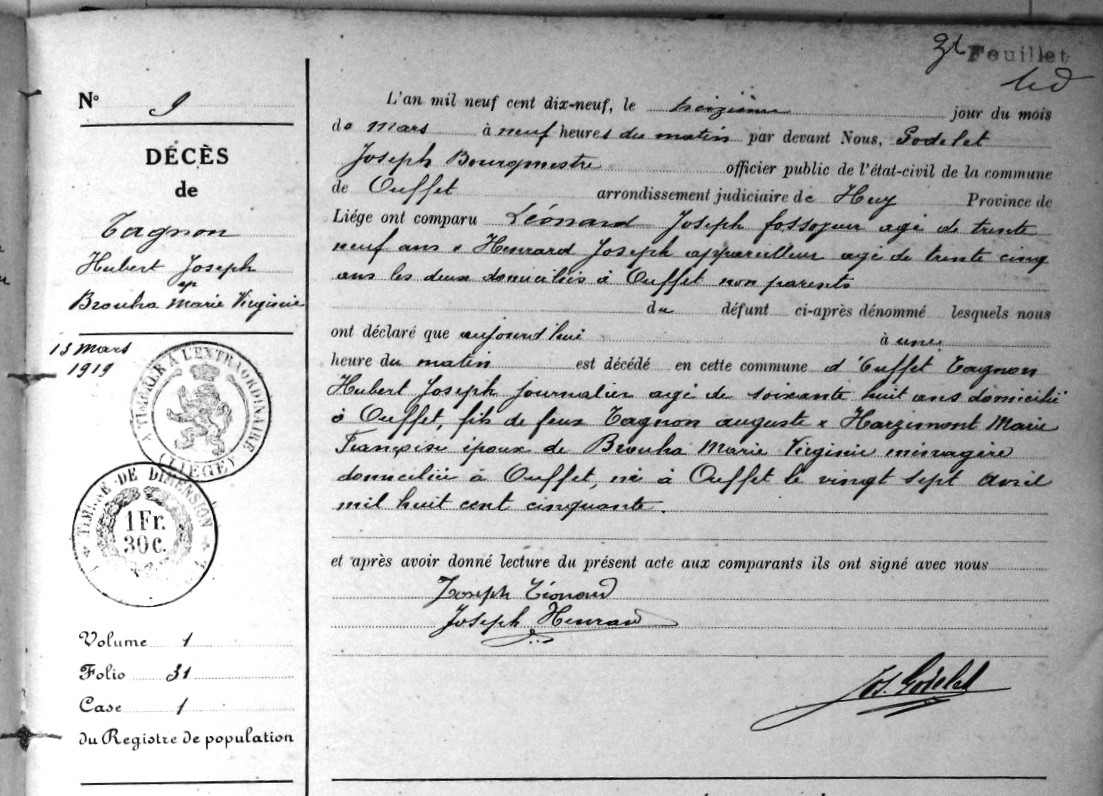 Feuillet
N° 9
DÉCÈS
de
Tagnon
Hubert Joseph
ep
Brouha Marie Virginie
13 mars
1919
A TIMBRER A L'EXTRAORDINAIRE
(LIÉGE)
TIMBRE DE DIMENSION
1 Fr.
30 c.
Volume 1
Folio 31
Case 1
du Registre de population
L'an mil neuf cent dix-neuf, le treizième jour du mois
de mars à neuf heures du matin par devant Nous, Godelet
Joseph Bourgmestre officier public de l'état-civil de la commune
de Ouffet arrondissement judiciaire de Huy Province de
Liége ont comparu Léonard Joseph fossoyeur agé de trente
neuf ans & Henrard Joseph appareilleur agé de trente cinq
ans les deux domiciliés à Ouffet non parents
du défunt ci-après dénommé lesquels nous
ont déclaré que aujourd'hui à une
heure du matin est décédé en cette commune d'Ouffet Tagnon
Hubert Joseph journalier agé de soixante huit ans domicilié
à Ouffet, fils de feus Tagnon auguste & Harzimont Marie
Françoise époux de Brouha Marie Virginie ménagère
domiciliée à Ouffet, né à Ouffet le vingt sept avril
mil huit cent cinquante.
et après avoir donné lecture du présent acte aux comparants ils ont signé avec nous
Joseph Léonard
Joseph Henrard
Jos. Godelet